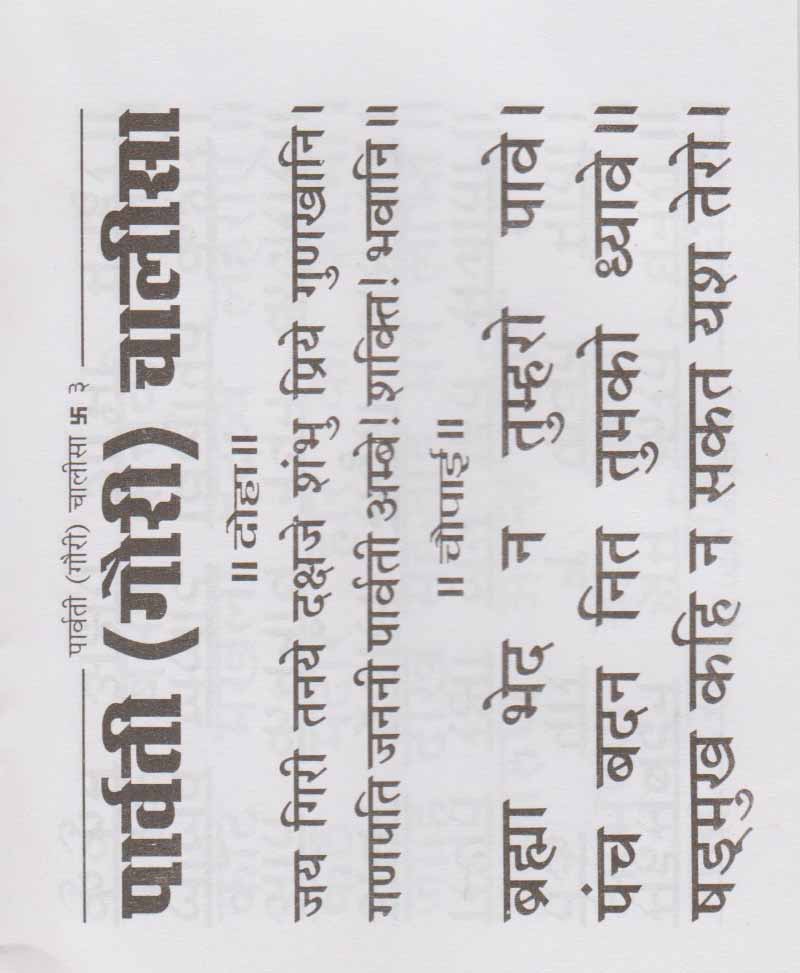 पार्वती (गौरी) चालीसा 卐 ३
पार्वती (गौरी) चालीसा
॥ दोहा॥
जय गिरी तनये दक्षजे शंभु प्रिये गुणखानि ।
गणपति जननी पार्वती अम्बे! शक्ति! भवानि ॥
॥ चौपाई ॥
ब्रह्मा भेद न तुम्हरो पावे ।
पंच बदन नित तुमको ध्यावे ॥
षड्मुख कहि न सकत यश तेरो ।